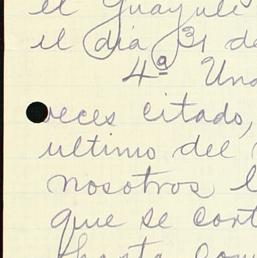 el Guayule
el dia 31 de
4ª Una
veces citado,
ultimo del
nosotros l
que se cont
hasta con